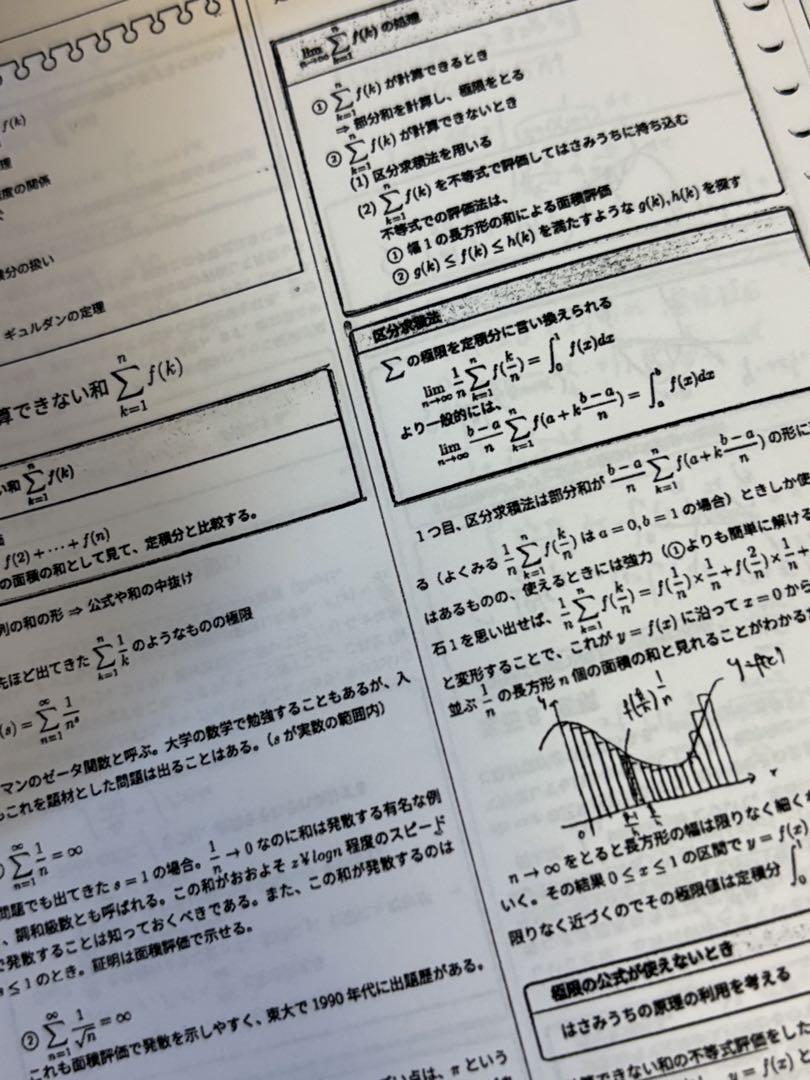 f(k)
理
度の関係
積分の扱い
ギュルダンの定理
算できない和 $\sum_{k=1}^{n} f(k)$
い和 $\sum_{k=1}^{n} f(k)$
価
f(2)+⋯+f(n)
の面積の和として見て、定積分と比較する。
列の和の形 ⇒ 公式や和の中抜け
先ほど出てきた $\sum_{k=1}^{n} \frac{1}{k}$ のようなものの極限
(s) = $\sum_{n=1}^{\infty} \frac{1}{n^s}$
マンのゼータ関数と呼ぶ。大学の数学で勉強することもあるが、入
もこれを題材とした問題は出ることはある。(s が実数の範囲内)
$\sum_{n=1}^{\infty} \frac{1}{n} = \infty$
問題でも出てきた s = 1 の場合。$\frac{1}{n}$ → 0 なのに和は発散する有名な例
、調和級数とも呼ばれる。この和がおおよそ z¥logn 程度のスピード
で発散することは知っておくべきである。また、この和が発散するのは
s ≤ 1 のとき。証明は面積評価で示せる。
② $\sum_{n=1}^{\infty} \frac{1}{\sqrt{n}} = \infty$
これも面積評価で発散を示しやすく、東大で 1990 年代に出題歴がある。
い点は、π という
$\lim_{n→∞} \sum_{k=1}^{n} f(k)$ の処理
① $\sum_{k=1}^{n} f(k)$ が計算できるとき
⇒ 部分和を計算し、極限をとる
② $\sum_{k=1}^{n} f(k)$ が計算できないとき
(1) 区分求積法を用いる
(2) $\sum_{k=1}^{n} f(k)$ を不等式で評価してはさみうちに持ち込む
不等式での評価法は、
① 幅 1 の長方形の和による面積評価
② g(k) ≤ f(k) ≤ h(k) を満たすような g(k), h(k) を探す
区分求積法
∑ の極限を定積分に言い換えられる
$\lim_{n→∞} \frac{1}{n} \sum_{k=1}^{n} f(\frac{k}{n}) = \int_0^1 f(x)dx$
より一般的には、
$\lim_{n→∞} \frac{b-a}{n} \sum_{k=1}^{n} f(a+k\frac{b-a}{n}) = \int_a^b f(x)dx$
1 つ目、区分求積法は部分和が $\frac{b-a}{n} \sum_{k=1}^{n} f(a+k\frac{b-a}{n})$ の形に
る(よくみる $\frac{1}{n} \sum_{k=1}^{n} f(\frac{k}{n})$ は a = 0, b = 1 の場合)ときしか使
はあるものの、使えるときには強力(①よりも簡単に解ける
石 1 を思い出せば、$\frac{1}{n} \sum_{k=1}^{n} f(\frac{k}{n}) = f(\frac{1}{n}) × \frac{1}{n} + f(\frac{2}{n}) × \frac{1}{n} +$
と変形することで、これが y = f(x) に沿って x = 0 から
並ぶ $\frac{1}{n}$ の長方形 n 個の面積の和と見れることがわかる
y
$f(\frac{k}{n}) \frac{1}{n}$
y=f(x)
0
$\frac{k-1}{n}$ $\frac{k}{n}$
x
n → ∞ をとると長方形の幅は限りなく細く
いく。その結果 0 ≤ x ≤ 1 の区間で y = f(x)
限りなく近づくのでその極限値は定積分 $\int_0^1$
極限の公式が使えないとき
はさみうちの原理の利用を考える
算できない和の不等式評価をした
y = f(x) と